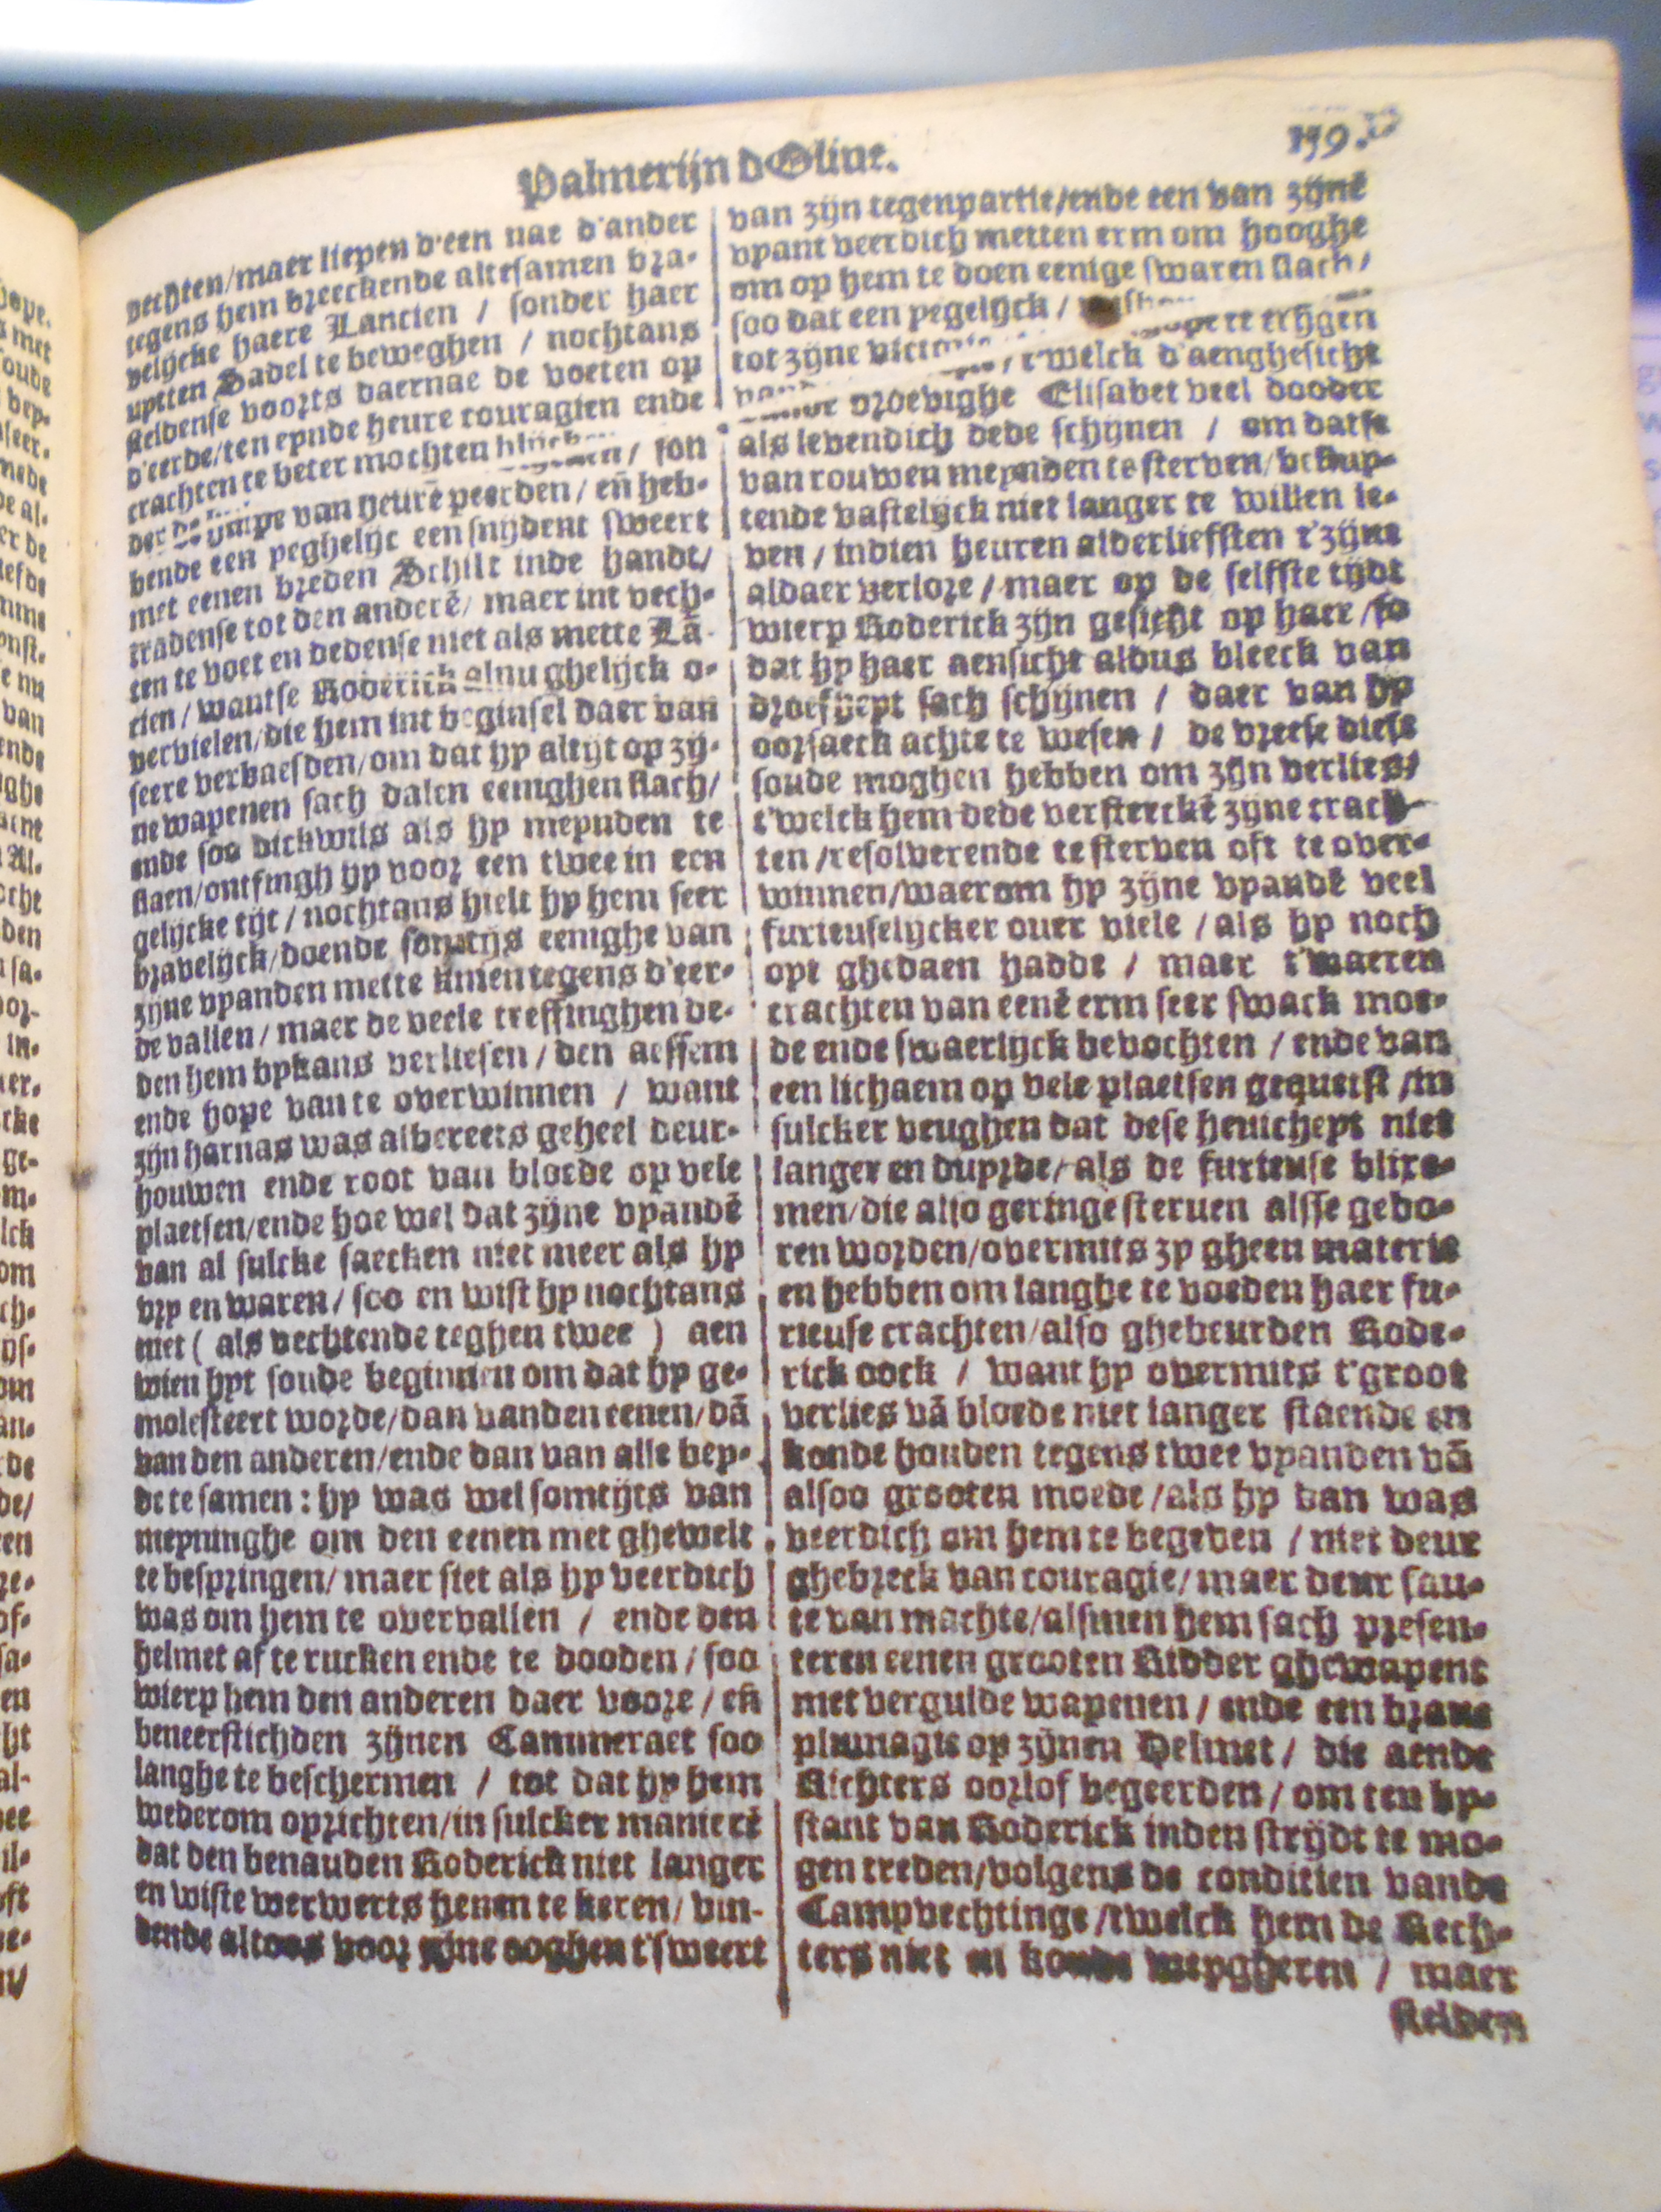 Palmerijn d Olive.
159.
vechten/maer liepen d'een nae d'ander
tegens hem breeckende altesamen bra-
velijcke haere Lancien / sonder haer
uptten Sadel te beweghen / nochtans
steldense voorts daernae de voeten op
d'eerde/ten eynde heure couragien ende
crachten te beter mochten / son
der van heurē peerden / eñ heb-
bende een yeghelijc een snijdent sweert
met eenen breden Schilt inde handt/
tradense tot den anderē/ maer int vech-
ten te voet en dedense niet als mette Lā-
cien / wantse Roderick al nu ghelijck o-
vervielen/die hem int beginsel daer van
seere verbaesden/om dat hy altijt op zy-
ne wapenen sach dalen eenighen slach/
ende soo dickwils als hy meynden te
slaen/ontfingh hy voor een twee in een
gelijcke tijt / nochtans hielt hy hem seer
bravelijck/doende somtijs eenighe van
zijne vyanden mette knien tegens d'eer-
de vallen / maer de veele treffinghen de-
den hem bykans verliesen / den aessem
ende hope van te overwinnen / want
zijn harnas was albereets geheel deur-
houwen ende root van bloede op vele
plaetsen/ende hoe wel dat zijne vyandē
van al sulcke saecken niet meer als hy
vry en waren / soo en wist hy nochtans
niet ( als vechtende teghen twee ) aen
wien hyt soude beginnen om dat hy ge-
molesteert worde/dan vanden eenen/dā
van den anderen/ende dan van alle bey-
de te samen : hy was wel somtijts van
meyninghe om den eenen met ghewelt
te bespringen/ maer siet als hy veerdich
was om hem te overvallen / ende den
helmet af te rucken ende te dooden / soo
wierp hem den anderen daer voore / eñ
beneerstichden zijnen Cammeraet soo
langhe te beschermen / tot dat hy hem
wederom oprichten/in sulcker manierē
dat den benauden Roderick niet langer
en wiste werwerts henen te keren/ vin-
dende altoos voor zijne ooghen t'sweert
van zijn tegenpartie/ende een van zijnē
vyant veerdich metten erm om hooghe
om op hem te doen eenige swaren slach/
soo dat een yegelijck /
tot zijne te crijgen
, t'welck d'aenghesicht
droevighe Elisabet veel dooder
als levendich dede schijnen / om datse
van rouwen meynden te sterven/ besluy-
tende vastelijck niet langer te willen le-
ven / indien heuren alderliefsten t'zijne
aldaer verlore / maer op de selffste tijdt
wierp Roderick zijn gesicht op haer /so
dat hy haer aensicht aldus bleeck van
droefheyt sach schijnen / daer van hy
oorsaeck achte te wesen / de vreese diese
soude moghen hebben om zijn verlies/
t'welck hem dede versterckē zijne crach-
ten /resolverende te sterven oft te over-
winnen/waerom hy zijne vyandē veel
furieuselijcker over viele / als hy noch
oyt ghedaen hadde / maer t'waeren
crachten van eenē erm seer swack moe-
de ende swaerlijck bevochten / ende van
een lichaem op vele plaetsen gequetst /in
sulcker veughen dat dese heuicheyt niet
langer en duyrde/als de furieuse blixe-
men/die also geringe sterven alsse gebo-
ren worden/overmits zy gheen materie
en hebben om langhe te voeden haer fu-
rieuse crachten/also ghebeurden Rode-
rick oock / want hy overmits t'groot
verlies vā bloede niet langer staende en
konde houden tegens twee vyanden vā
alsoo grooten moede /als hy dan was
veerdich om hem te begeven / niet deur
ghebreck van couragie/maer deur fau-
te van machte/alsmen hem sach presen-
teren eenen grooten Ridder ghewapent
met vergulde wapenen / ende een brave
plumagie op zijnen Helmet / die aende
Richters oorlof begeerden / om ten by-
stant van Roderick inden strijdt te mo-
gen treden/volgens de conditien vande
Campvechtinge /twelck hem de Rech-
ters niet en konde weygheren / maer
stelden